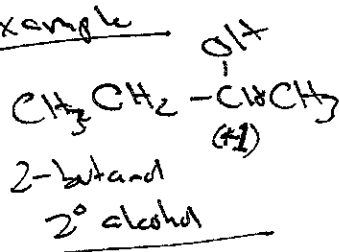 xample
OH
CH3CH2-CHCH3
(+1)
2-butanol
2° alcohol